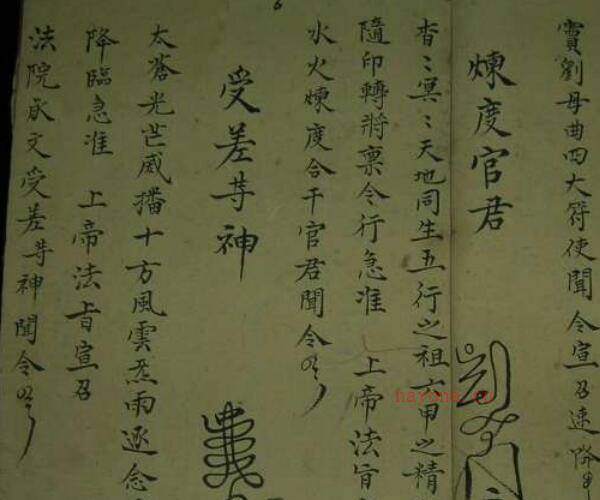 竇劉毋曲四大符使聞令宣召速降
煉度官君
杳〻冥〻天地同生五行之祖六甲之精
隨印轉將禀令行急准　上帝法旨
水火煉度合干官君聞令
受差䓁神
太答光芒威播十方風雲雨逐念
降臨急准　上帝法旨宣召
法院承文受差䓁神聞令